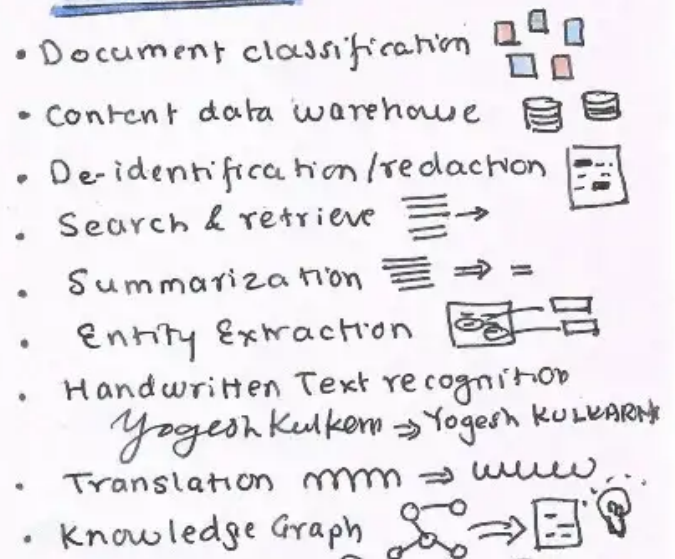 • Document classification
• Content data warehouse
• De-identification/redaction
• Search & retrieve
• Summarization
• Entity Extraction
• Handwritten Text recognition
Yogesh Kulkarni → Yogesh KULKARNI
• Translation
• Knowledge Graph